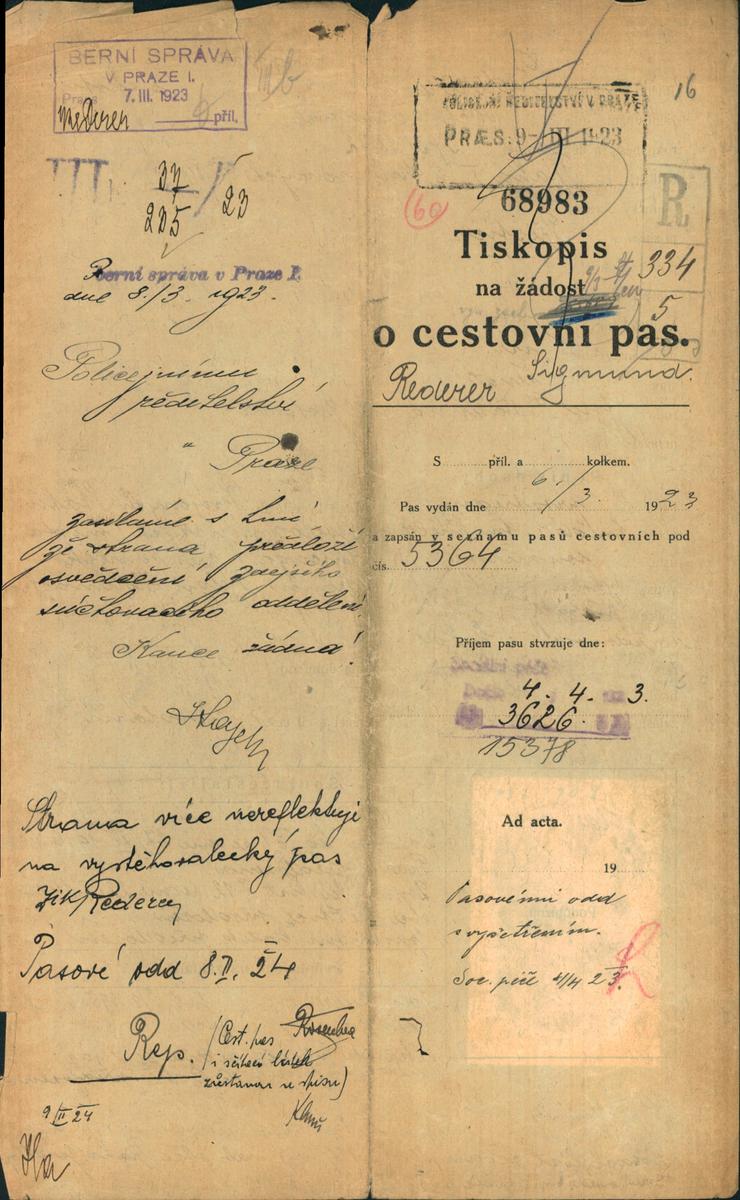 BERNÍ SPRÁVA
V PRAZE I.
Praha 7. III. 1923
Rederer příl.
III 37/23
205
Berní správa v Praze I.
dne 8./3. 1923.
Policejnímu
ředitelství
v Praze
zasíláme s tím
že strana předloží
osvědčení zdejšího
súčtovacího oddělení.
Kauce žádná!
Strana více nereflektuje
na vystěhovalecký pas
Rederer
Pasové odd 8.II. 24
Rep. (Cest. pas
i sčítací lístek
zůstanou ve spisu)
9/II 24
16
POLICEJNÍ ŘEDITELSTVÍ V PRAZE
PRÆS. 9-III 1923
60
68983
R
Tiskopis
334
na žádost
5
o cestovní pas.
Rederer Sigmund.
S příl. a kolkem.
Pas vydán dne 6./3. 1923
a zapsán v seznamu pasů cestovních pod
čís. 5364
Příjem pasu stvrzuje dne:
4. 4. 3.
3626
15378
Ad acta.
19
Pasovému odd
s vyšetřením.
Soc. péče 4/4 23.